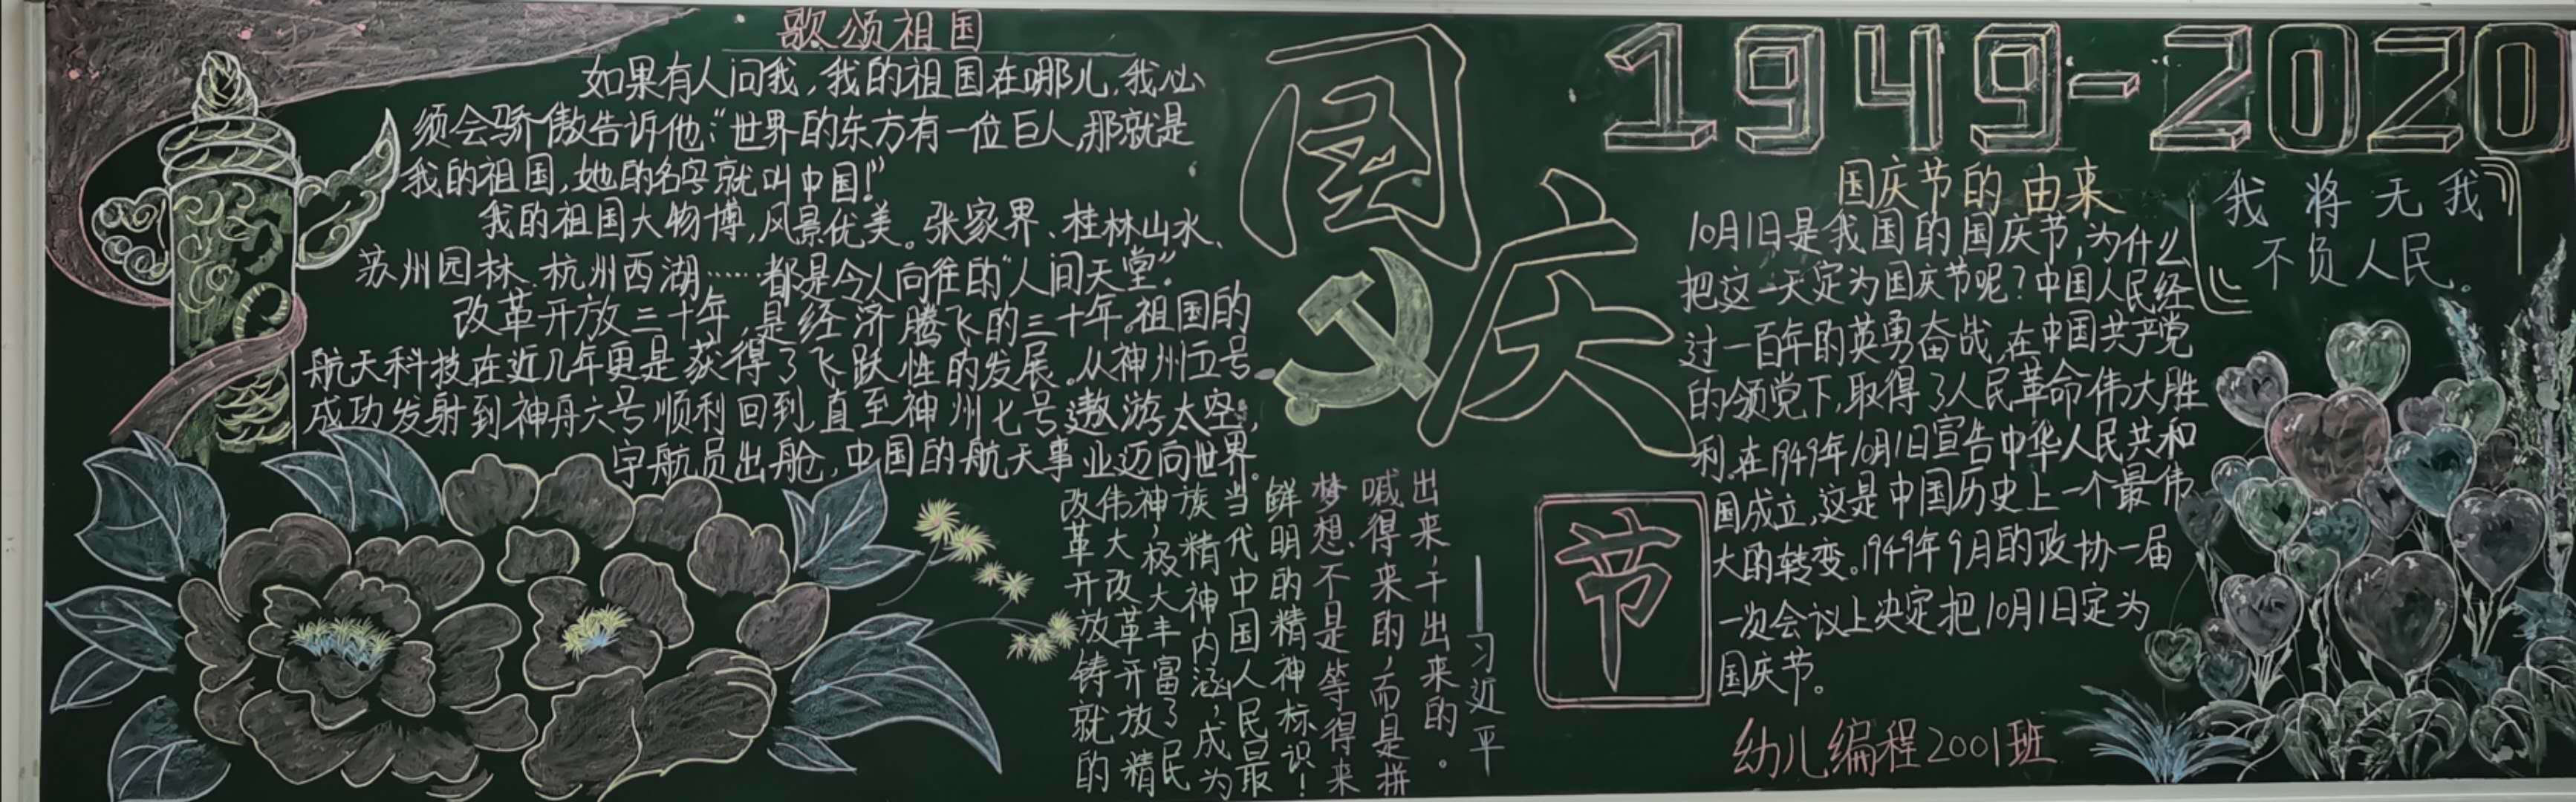 歌颂祖国
如果有人问我,我的祖国在哪儿,我必
须会骄傲告诉他:“世界的东方有一位巨人,那就是
我的祖国,她的名字就叫中国!”
我的祖国大物博,风景优美。张家界、桂林山水、
苏州园林、杭州西湖……都是令人向往的“人间天堂”。
改革开放三十年,是经济腾飞的三十年。祖国的
航天科技在近几年更是获得了飞跃性的发展。从神州五号
成功发射到神舟六号顺利回到,直至神州七号遨游太空,
宇航员出舱,中国的航天事业迈向世界。
国
庆
节
改革开放铸就的
伟大改革开放精
神,极大丰富了民
族精神内涵,成为
当代中国人民最
鲜明的精神标识!
梦想不是等得来
喊得来的,而是拼
出来,干出来的。
——习近平
1949-2020
国庆节的由来
10月1日是我国的国庆节,为什么
把这一天定为国庆节呢?中国人民经
过一百年的英勇奋战,在中国共产党
的领党下,取得了人民革命伟大胜
利.在1949年10月1日宣告中华人民共和
国成立,这是中国历史上一个最伟
大的转变。1949年9月的政协一届
一次会议上决定把10月1日定为
国庆节。
我将无我
不负人民。
幼儿编程2001班